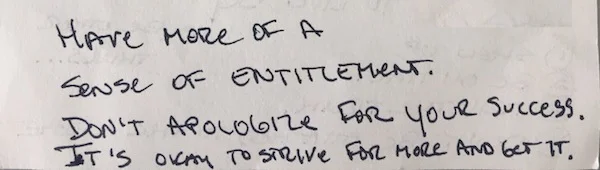 HAVE MORE OF A
SENSE OF ENTITLEMENT.
DON'T APOLOGIZE FOR YOUR SUCCESS.
IT'S OKAY TO STRIVE FOR MORE AND GET IT.